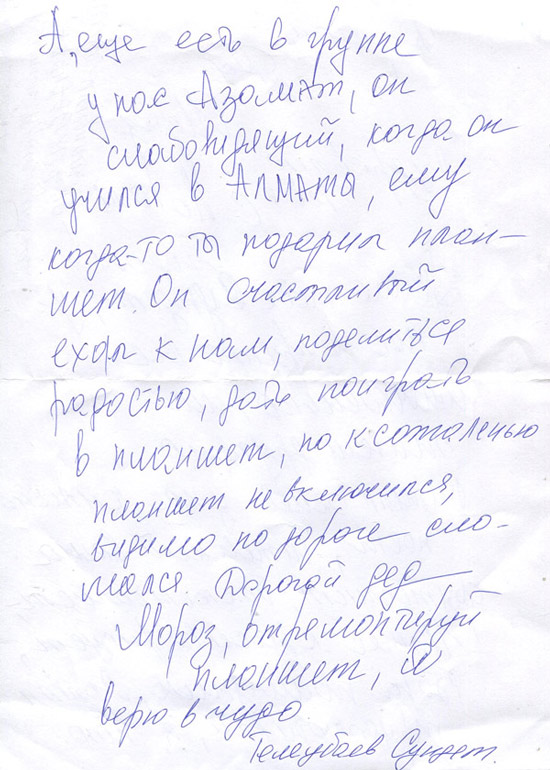 А, еще есть в группе
у нас Азамат, он
слабовидящий, когда он
учился в АЛМАТЫ, ему
когда-то ты подарил план-
шет. Он счастливый
ехал к нам, поделиться
радостью, дать поиграть
в планшет, но к сожаленью
планшет не включился,
видимо по дороге сло-
мался. Дорогой дед
Мороз, отремонтируй
планшет, Я
верю в чудо
Телеубаев Сунгат.